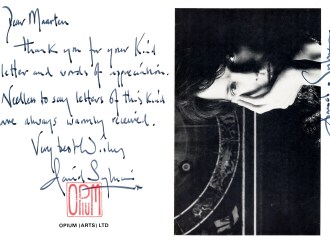 Dear Maarten
thank you for your kind
letter and words of appreciation.
Needless to say letters of this kind
are always warmly received.
Very best Wishes
David Sylvian
OPIUM
OPIUM (ARTS) LTD